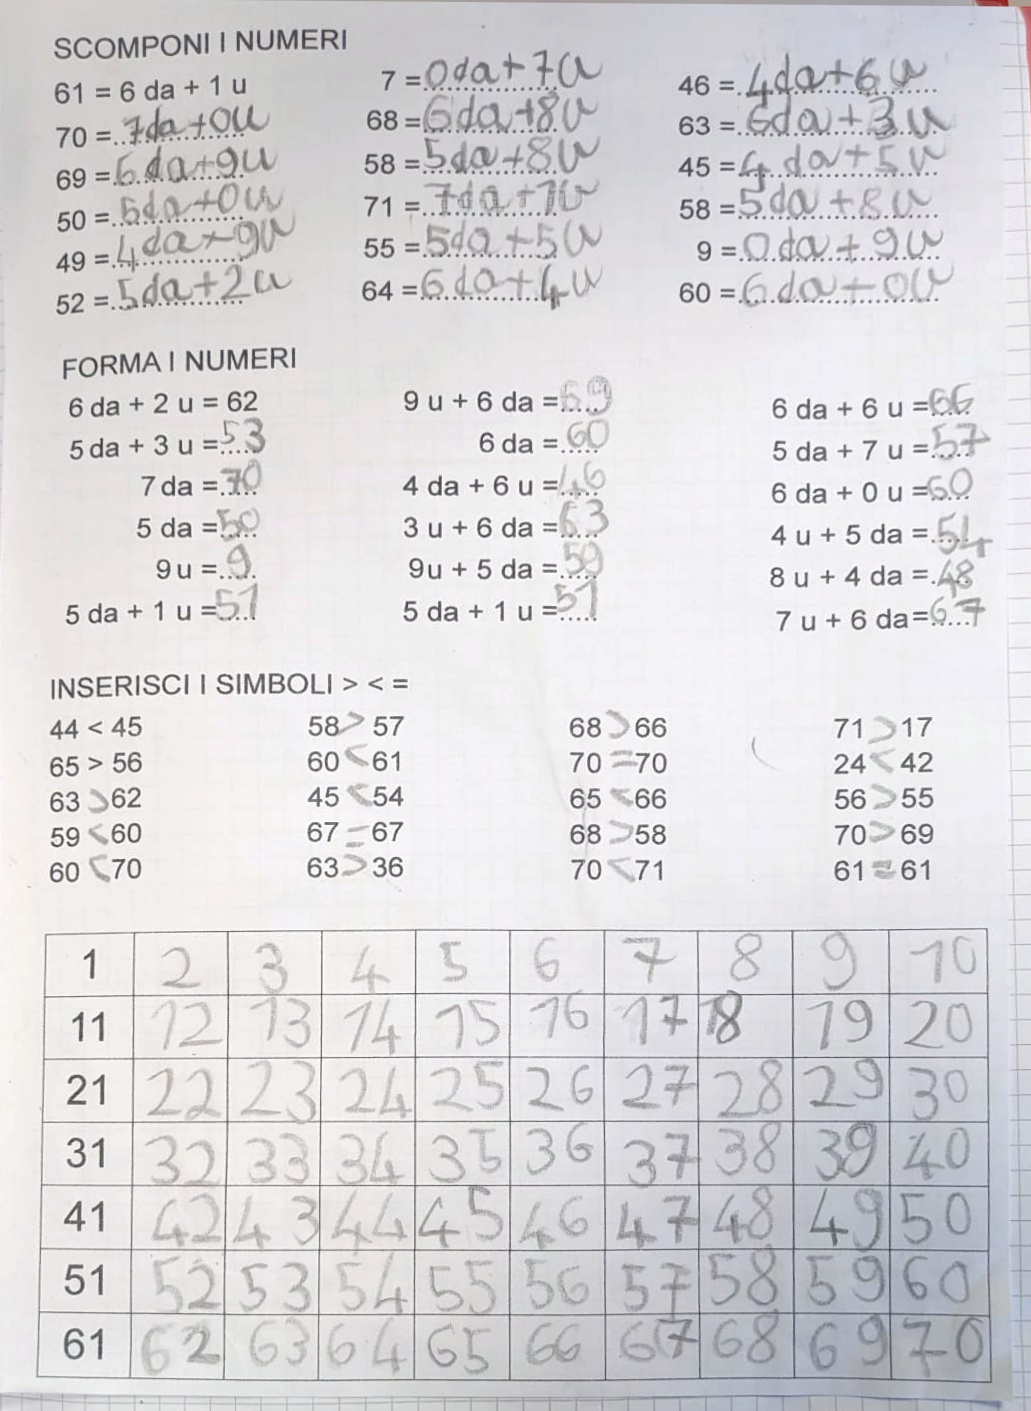 SCOMPONI I NUMERI
61 = 6 da + 1 u 7 = 0da+7u 46 = 4da+6u
70 = 7da+0u 68 = 6da+8u 63 = 6da+3u
69 = 6da+9u 58 = 5da+8u 45 = 4da+5u
50 = 5da+0u 71 = 7da+1u 58 = 5da+8u
49 = 4da+9u 55 = 5da+5u 9 = 0da+9u
52 = 5da+2u 64 = 6da+4u 60 = 6da+0u
FORMA I NUMERI
6 da + 2 u = 62 9 u + 6 da = 69 6 da + 6 u = 66
5 da + 3 u = 53 6 da = 60 5 da + 7 u = 57
7 da = 70 4 da + 6 u = 46 6 da + 0 u = 60
5 da = 50 3 u + 6 da = 63 4 u + 5 da = 54
9 u = 9 9u + 5 da = 59 8 u + 4 da = 48
5 da + 1 u = 51 5 da + 1 u = 51 7 u + 6 da = 67
INSERISCI I SIMBOLI > < =
44 < 45 58 > 57 68 > 66 71 > 17
65 > 56 60 < 61 70 = 70 24 < 42
63 > 62 45 < 54 65 < 66 56 > 55
59 < 60 67 = 67 68 > 58 70 > 69
60 < 70 63 > 36 70 < 71 61 = 61
1 2 3 4 5 6 7 8 9 10
11 12 13 14 15 16 17 18 19 20
21 22 23 24 25 26 27 28 29 30
31 32 33 34 35 36 37 38 39 40
41 42 43 44 45 46 47 48 49 50
51 52 53 54 55 56 57 58 59 60
61 62 63 64 65 66 67 68 69 70